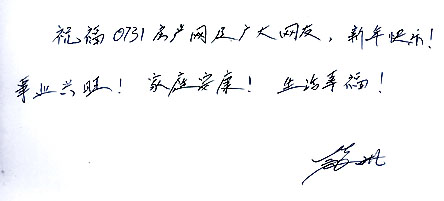 祝福0731房产网及广大网友，新年快乐！
事业兴旺！家庭安康！生活幸福！